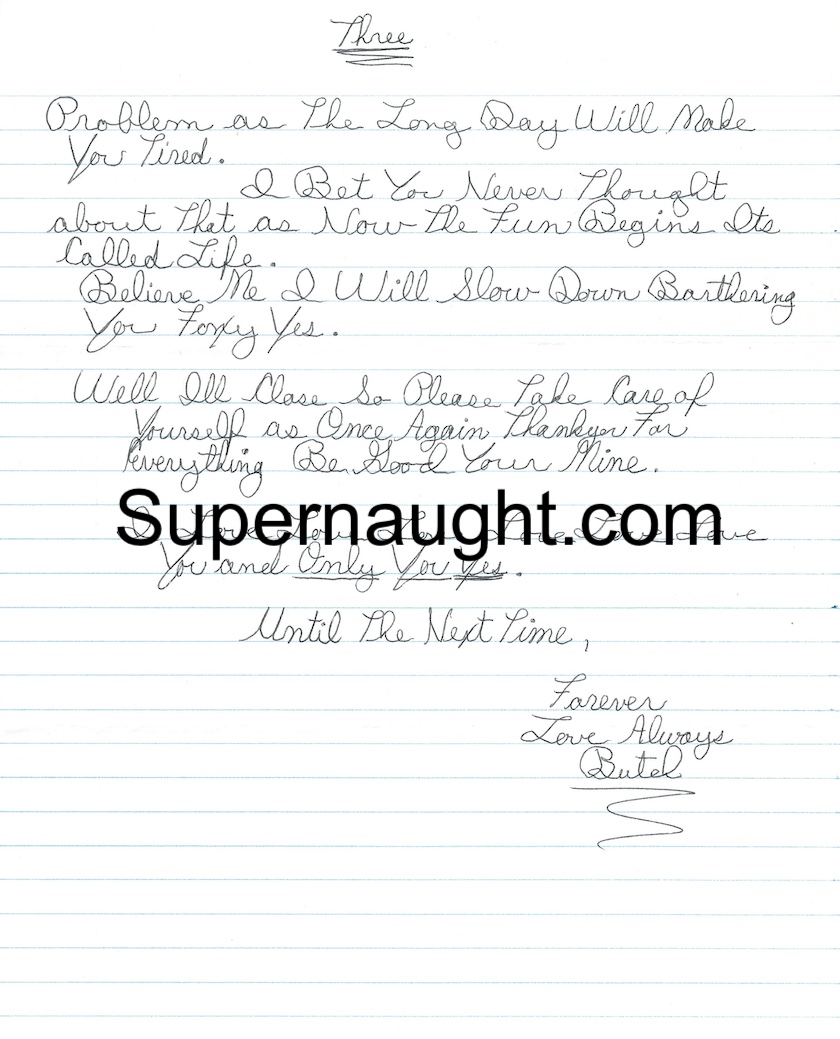 Three
Problem as The Long Day Will Make
You Tired.
I Bet You Never Thought
about That as Now The Fun Begins Its
Called Life.
Believe Me I Will Slow Down Barthering
You Foxy Yes.
Well Ill Close So Please Take Care of
Yourself as Once Again Thankyou For
Everything Be Good Your Mine.
Supernaught.com
I Love You Love
You and Only You Yes.
Until The Next Time,
Forever
Love Always
Butch